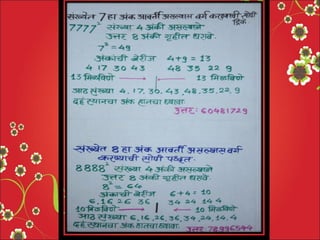 संख्येत 7 हा अंक आवर्ती असल्यास वर्ग करण्याची सोपी ट्रिक
7777² संख्या 4 अंकी असल्याने
उत्तर 8 अंकी गृहीत धरावे.
7² = 49
अंकांची बेरीज 4+9 = 13
4 17 30 43 48 35 22 9
13 मिळविणे 13 मिळविणे
आठ संख्या 4, 17, 30, 43, 48, 35, 22, 9
दहं स्थानचा अंक हातचा घ्यावा.
उत्तर: 60481729
संख्येत 8 हा अंक आवर्ती असल्यास वर्ग
करण्याची सोपी पध्दत
8888² संख्या 4 अंकी असल्याने
उत्तर 8 अंकी गृहीत धरावे
8² = 64
अंकांची बेरीज 6+4 = 10
6, 16 26 36 34 24 14 4
10 मिळविणे 10 मिळविणे
आठ संख्या 6, 16, 26, 36, 34, 24, 14, 4
दहं स्थानचा अंक हातचा घ्यावा.
उत्तर 78996544